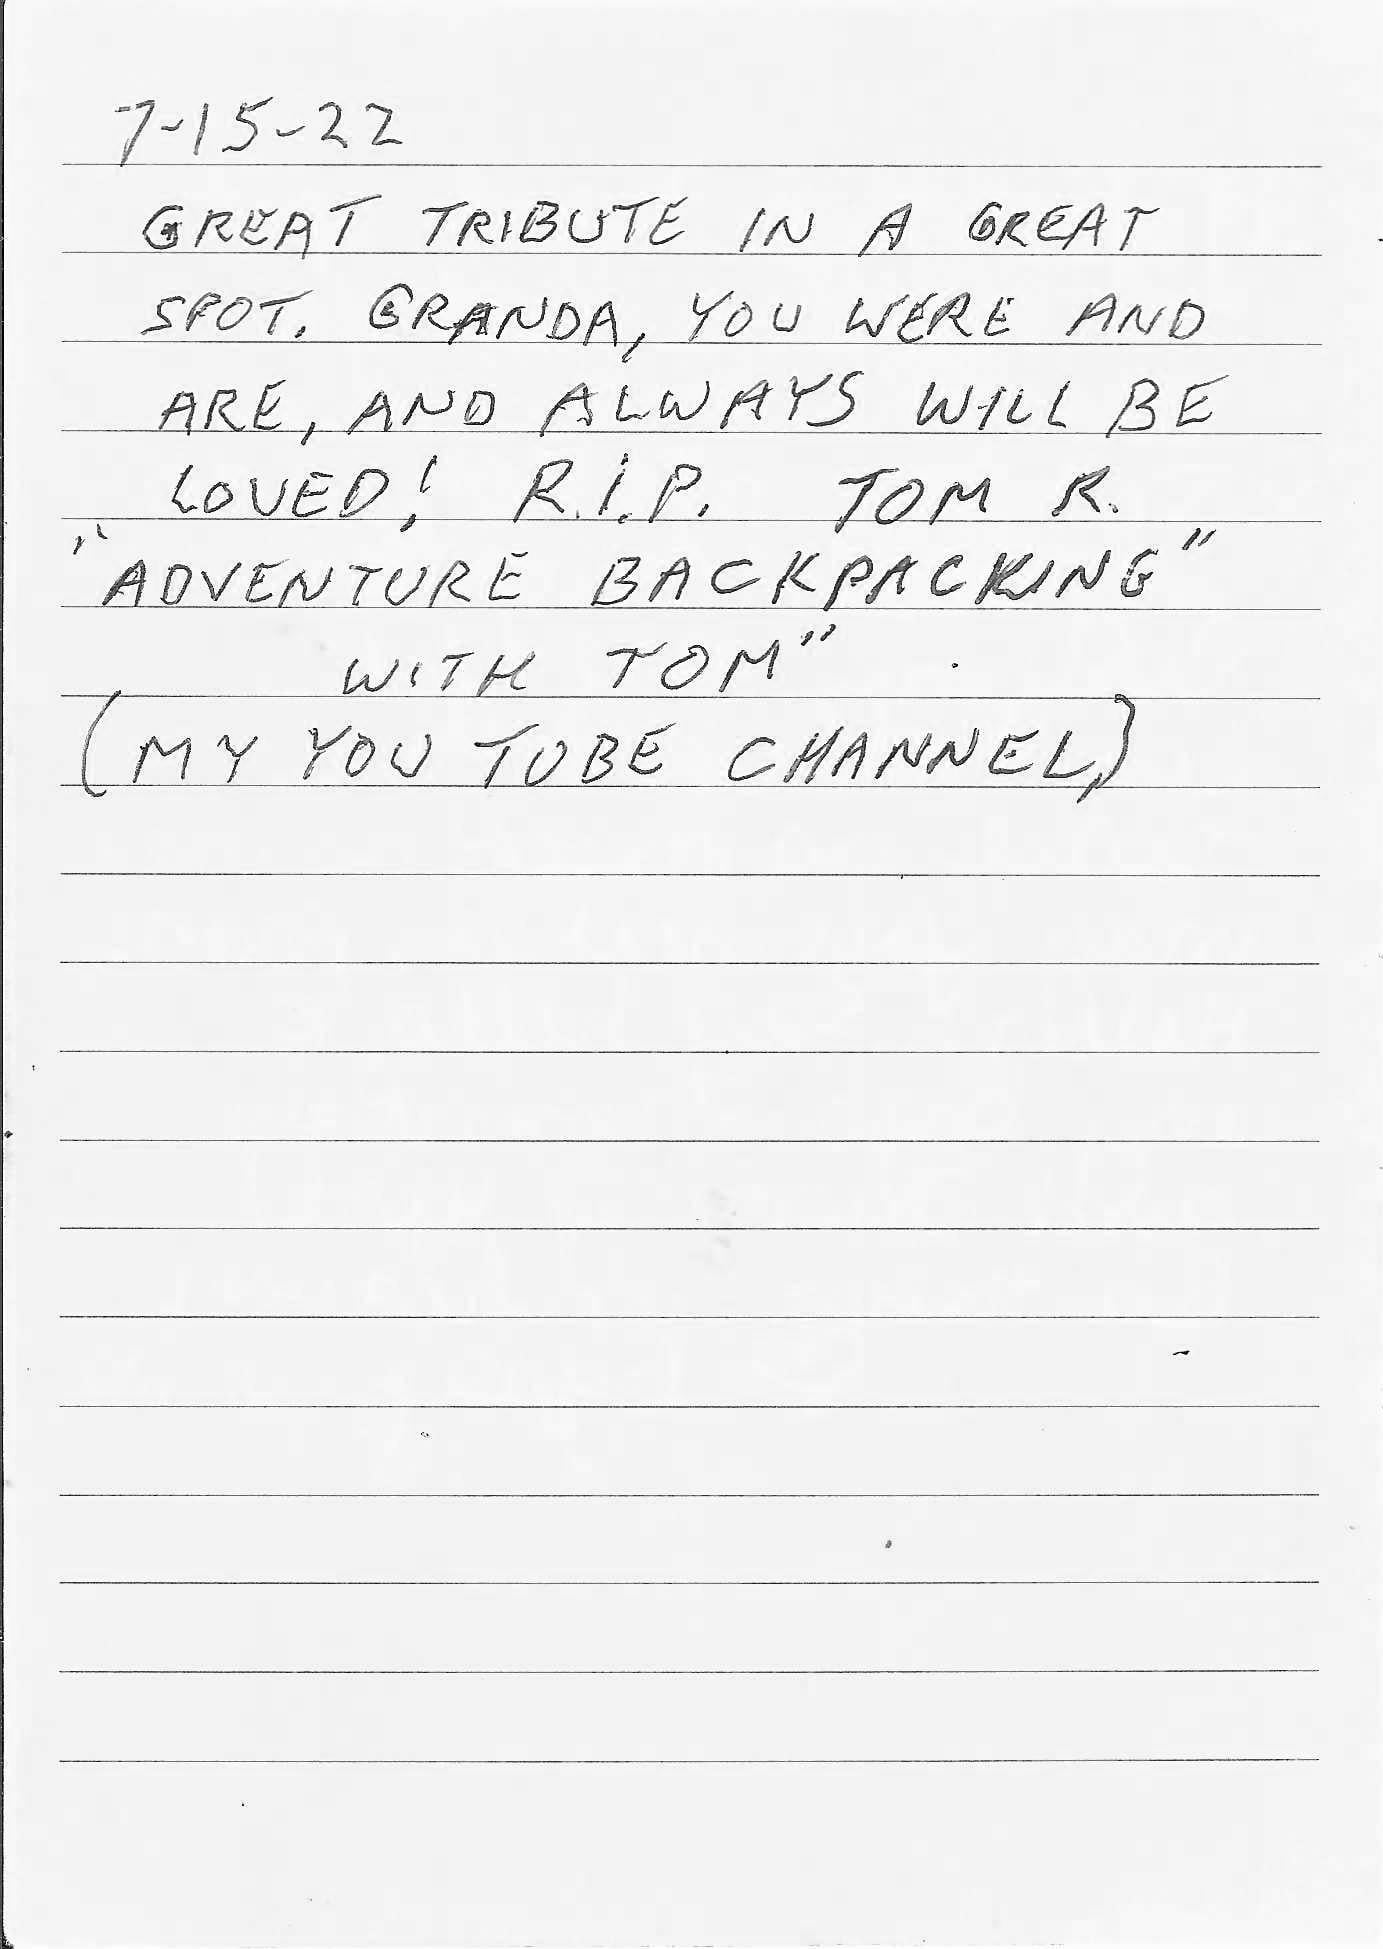 7-15-22
GREAT TRIBUTE IN A GREAT
SPOT. GRANDA, YOU WERE AND
ARE, AND ALWAYS WILL BE
LOVED! R.I.P. TOM R.
"ADVENTURE BACKPACKING"
WITH TOM"
(MY YOU TUBE CHANNEL,)